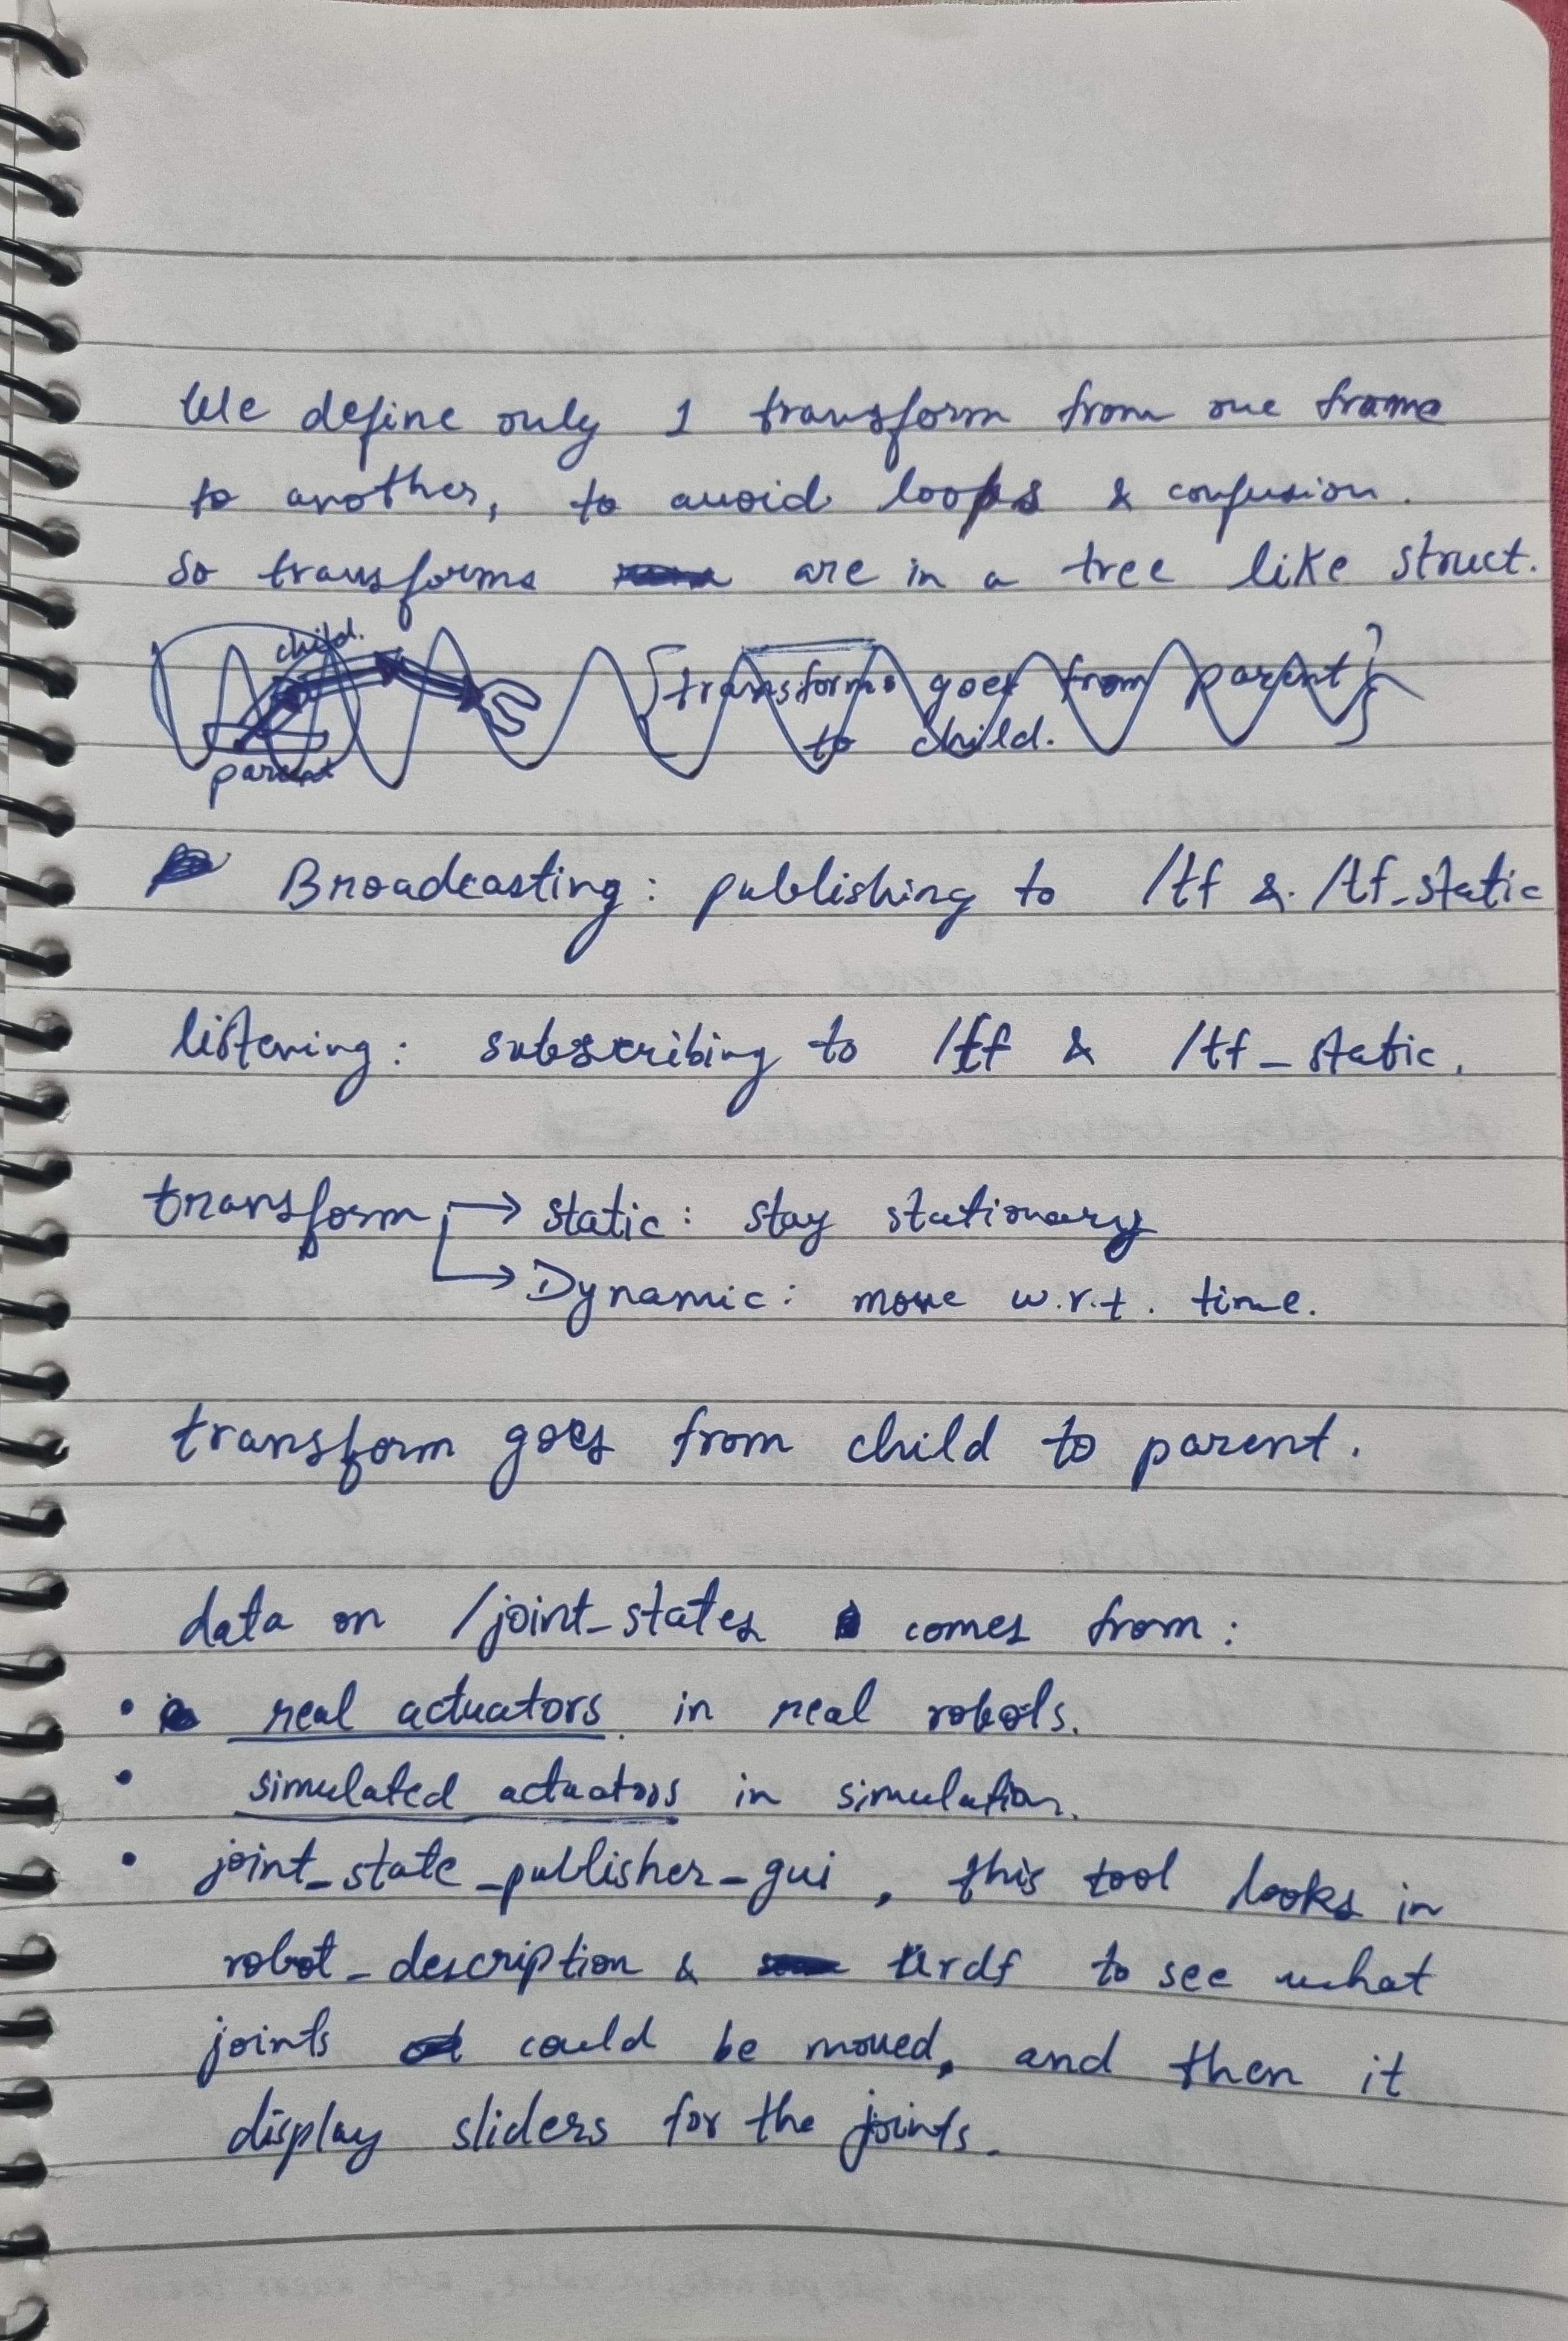 We define only 1 transform from one frame
to another, to avoid loops & confusion.
so transforms are in a tree like struct.
child.
{transforms goes from parent}
to child.
parent
Broadcasting: publishing to /tf & /tf_static
listening: subscribing to /tf & /tf_static.
transform → static: stay stationary
→ Dynamic: move w.r.t. time.
transform goes from child to parent.
data on /joint_states comes from:
• real actuators in real robots.
• simulated actuators in simulation.
• joint_state_publisher_gui, this tool looks in
robot_description & urdf to see what
joints could be moved, and then it
display sliders for the joints.